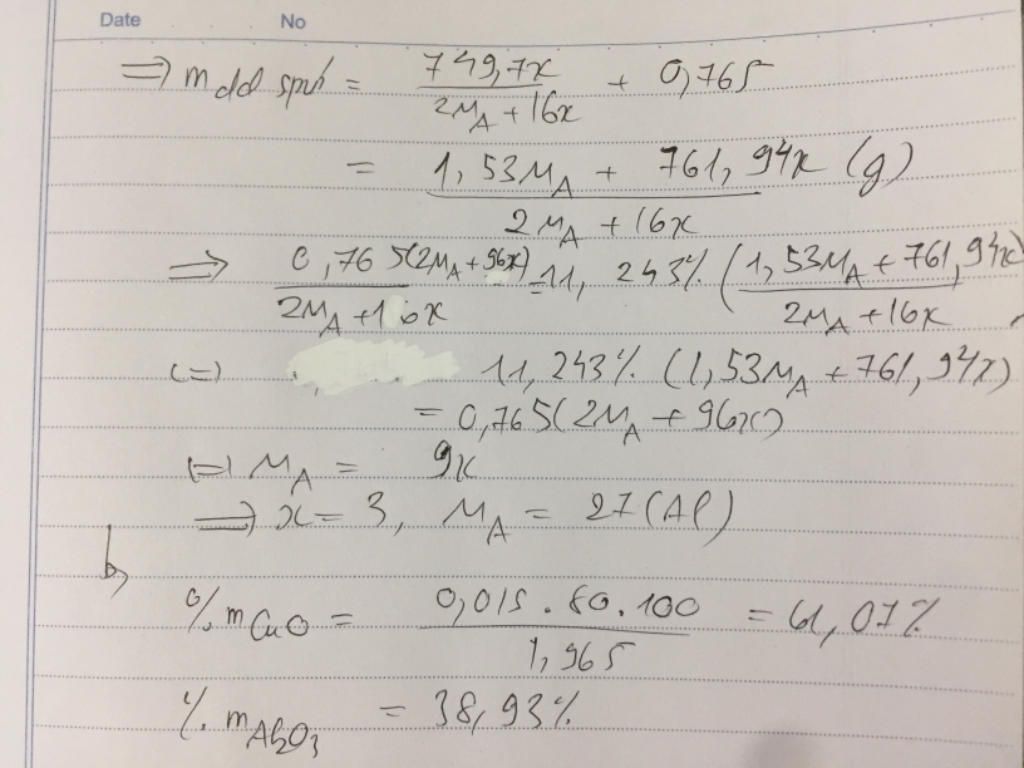 Date No
=> m dd spứ = 749,7x / (2M_A + 16x) + 0,765
= (1,53M_A + 761,94x) / (2M_A + 16x) (g)
=> 0,765(2M_A + 96x) / (2M_A + 16x) = 11,243% (1,53M_A + 761,94x) / (2M_A + 16x)
(=) 11,243% (1,53M_A + 761,94x)
= 0,765(2M_A + 96x)
(=) M_A = 9x
=> x = 3, M_A = 27 (Al)
b,
%m_CuO = 0,015 . 80 . 100 / 1,965 = 61,07%
%m_Al2O3 = 38,93%